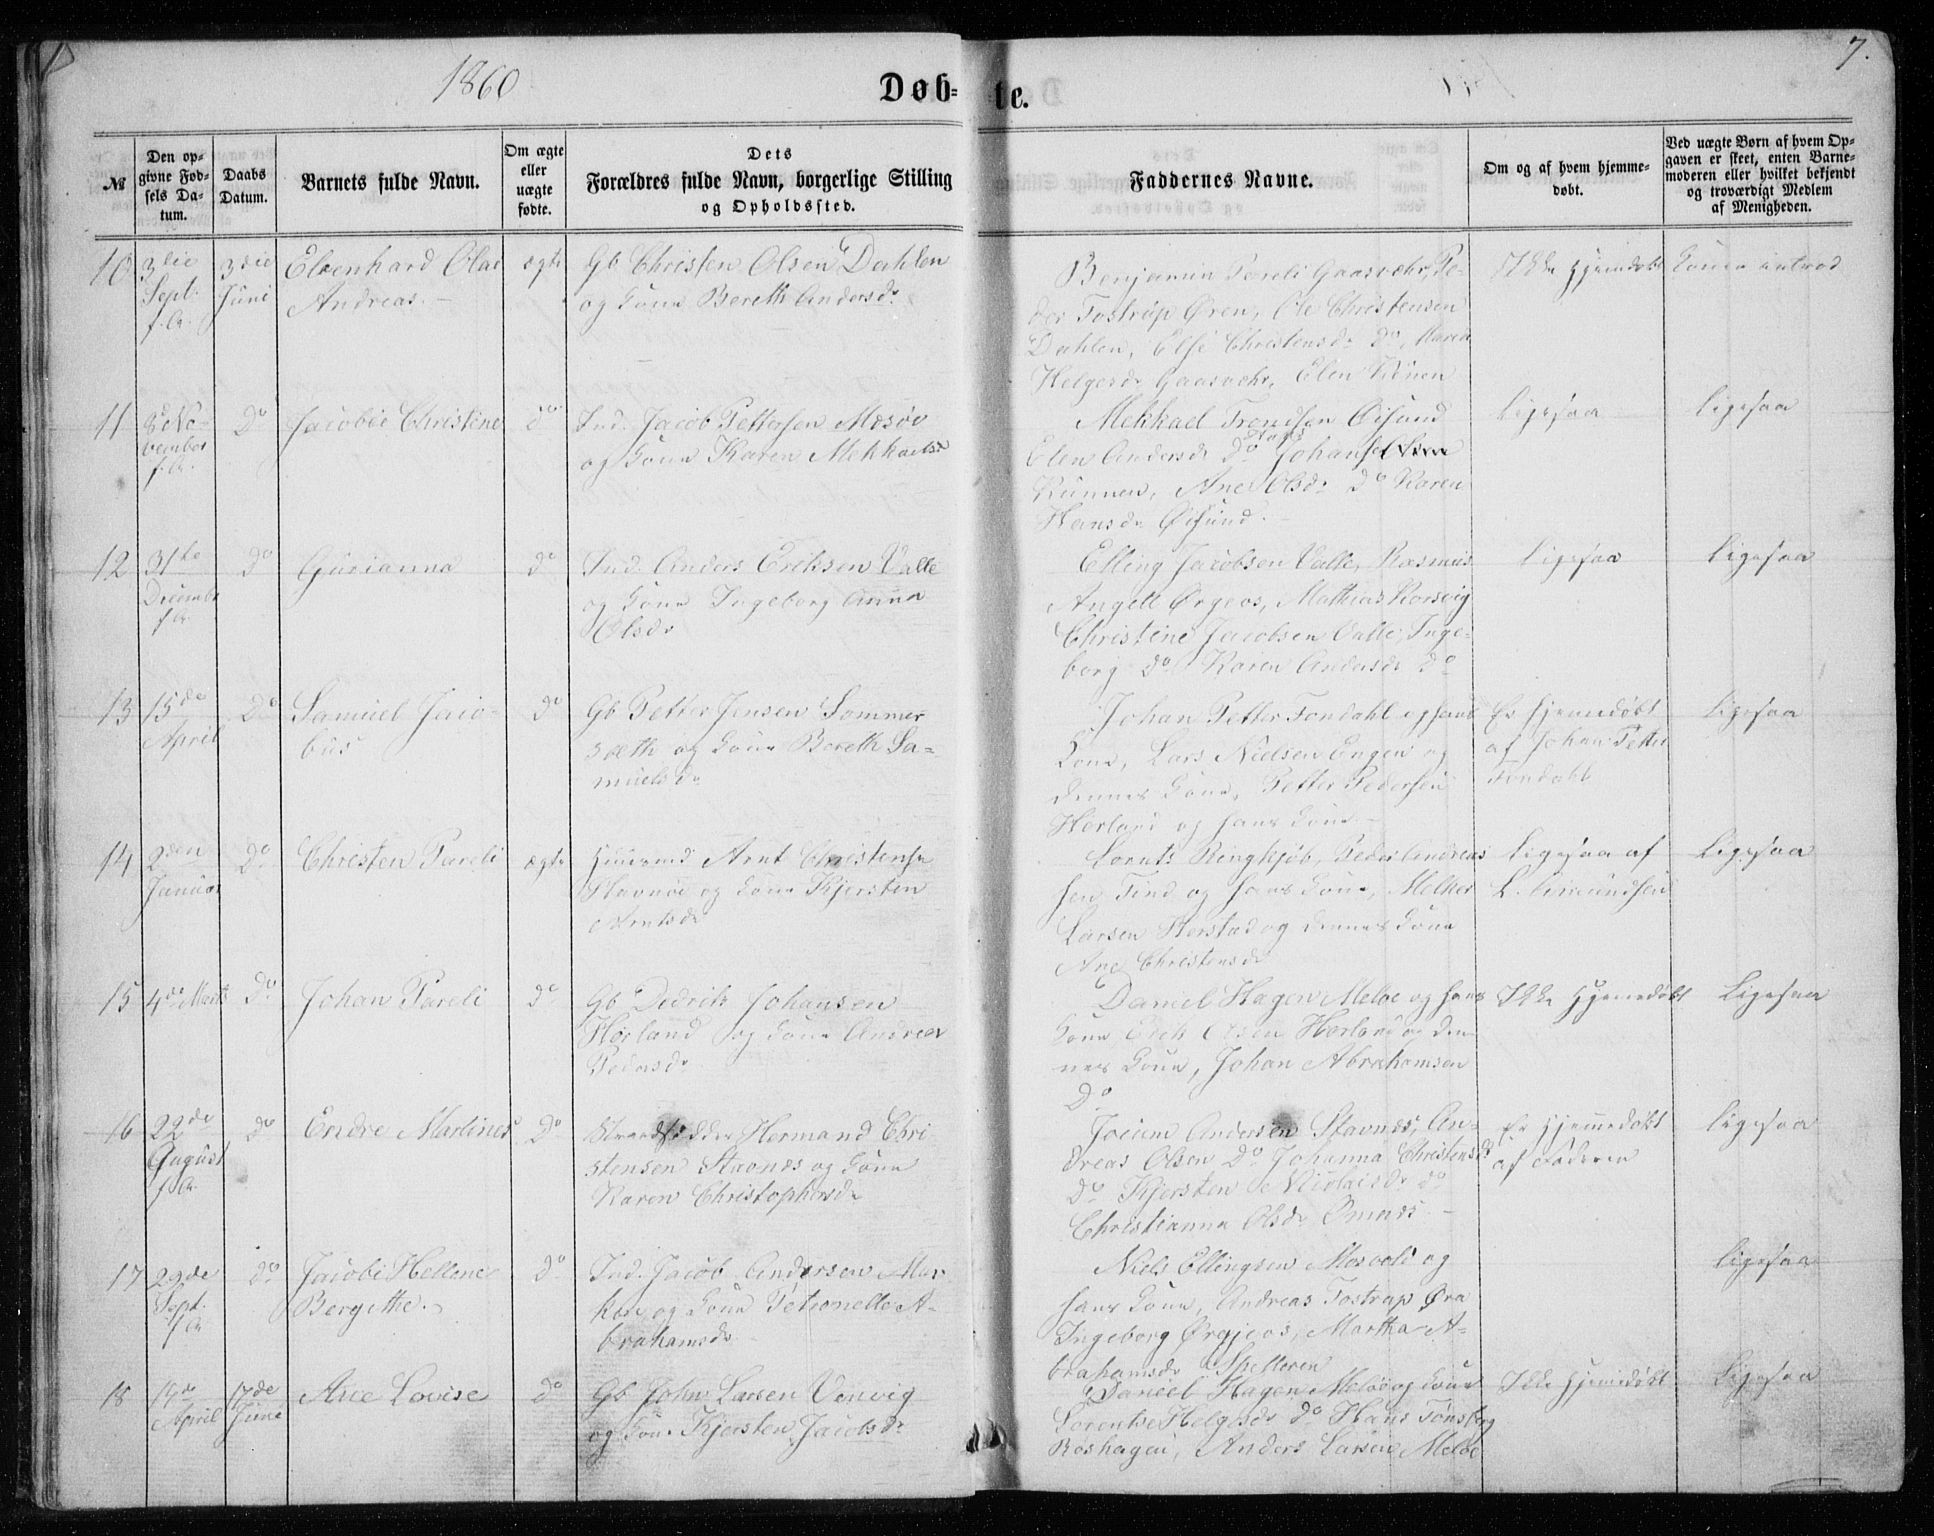 1860
Døb=
te.
7.
№
Den op-
givne Fød-
sels Da-
tum.
Daabs
Datum.
Barnets fulde Navn.
Om ægte
eller
uægte
fødte.
Dets
Forældres fulde Navn, borgerlige Stilling
og Opholdssted.
Faddernes Navne.
Om og af hvem hjemme-
døbt.
Ved uægte Børn af hvem Op-
gaven er skeet, enten Barne-
moderen eller hvilket bekjendt
og troværdigt Medlem
af Menigheden.
10
3die
Sept.
f. A.
3die
Juni
Olai
Andreas.
ægte
Gb Christen Olsen Dahlen
og Kone Bereth Andersdr
Benjamin Pareli Gaasvær, Pe-
der Tostrup Øren, Ole Christensen
Dahlen, Else Christensdr Do, Maren
Helgesdr Gaasvær, Elen
Ikke hjemdøbt
Konen introd
11
No-
vember
f. A.
Do
Jacobie Christine
do
Ind. Jacob Pettersen Mæsøe
og Kone Karen Mekkaelsdr
Mekkael Trondsen Øisund
Elen Andersdr Do Johans
Kunnen, Ane Olsdr Do Karen
Hansdr Øisund.
Ligesaa
Ligesaa
12
31te
Decembr
f. A.
Do
Gurianna
do
Ind. Anders Eriksen Valle
og Kone Ingeborg Anna
Olsdr
Elling Jacobsen Valle, Rasmus
Angell Ørgeos, Mathias Korsvig
Christine Jacobsen Valle, Inge-
borg Do Karen Andersdr Do
Ligesaa
Ligesaa
13
15de
April
Do
Samuel Jaco-
bus
do
Gb Petter Jensen Sommer
sæth og Kone Bereth Sa-
muelsdr
Johan Petter Fondahl og hans
Kone, Lars Nielsen Engen og
dennes Kone, Petter Pedersen
Herland og hans Kone
Er hjemmedøbt
af Johan Petter
Fondahl
Ligesaa
14
2den
Januar
Do
Christen Pareli
ægte
Huusmd Arnt Christensen
Stavnøe og Kone Kjersten
Arntsdr
Lornts Ringkjøb, Peder Andreas
sen Find og hans Kone, Melker
Larsen Herstad og dennes Kone
Ane Christensdr
Ligesaa af
L. Amundsen
Ligesaa
15
4de Marts
Do
Johan Pareli
do
Gb Dedrik Johansen
Herland og Kone Andrea
Pedersdr
Daniel Hagen Meløe og hans
Kone Erik Olsen Herland og den-
nes Kone, Johan Abrahamsen
Do
Ikke hjemmedøbt
Ligesaa
16
22de
August
f. A.
do
Endre Martines
Do
Strandsidder Hermand Chri
stensen Stavnes og Kone
Karen Christophersdr
Jocum Andersen Stavnes, An-
dreas Olsen Do Johanna Christensdr
Do Kjersten Nicolaisdr do
Christianna Olsdr Ømnes
Er hjemmedøbt
af Faderen
Ligesaa
17
29de
Sept.
f. A.
do
Jacobe Hellene
Bergitthe.
Do
Ind. Jacob Andersen
og Kone Petronelle A-
brahamsdr
Niels Ellingsen Mosvold og
hans Kone, Andreas Tostrup Øra
Ingeborg Ørgjeos, Martha A-
brahamsdr Spelloren
Ligesaa
18
April
17de
June
Ane Lovise
do
Gb John Larsen Venvig
og Kone Kjersten Jacobsdr
Daniel Hagen Meløe og Kone
Lorentse Helgesdr Do Hans Tønsberg
Roshagen, Anders Larsen Meløe
Ikke hjemdøbt
Ligesaa